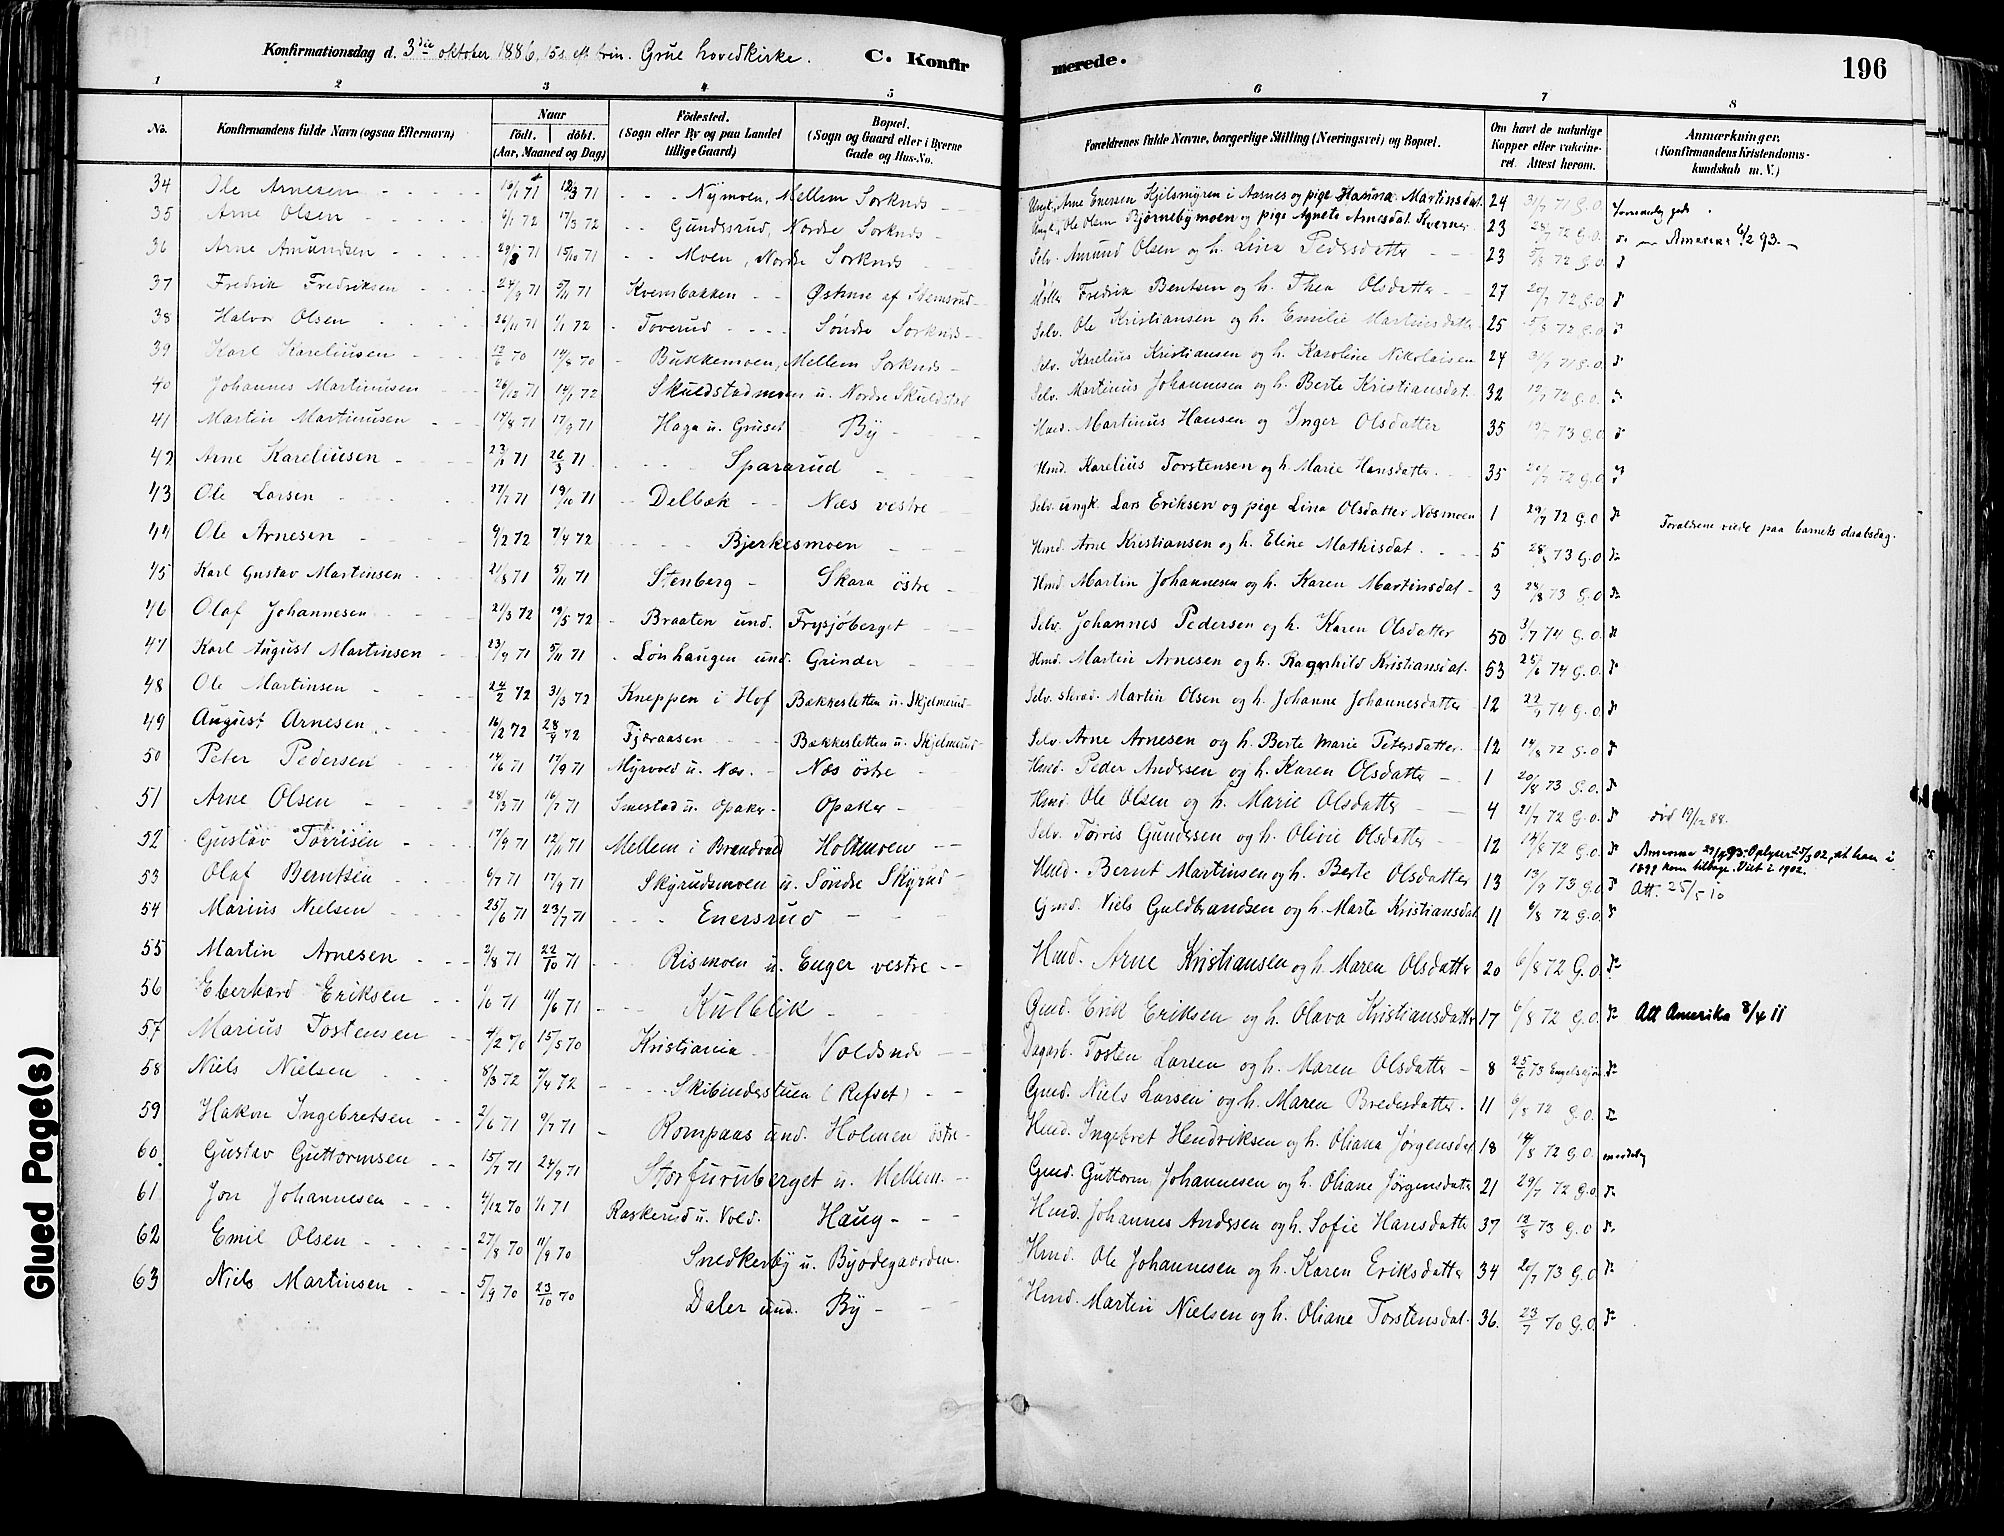 Konfirmationsdag d. 3die oktober 1886, 15 s. eft. trin. Grue hovedkirke. C. Konfir
merede. 196
1 2 3 4 5
6 7 8
No. Konfirmandens fulde Navn (ogsaa Efternavn) Naar født. døbt. (Aar, Maaned og Dag) Fødested. (Sogn eller By og paa Landet tillige Gaard) Bopæl. (Sogn og Gaard eller i Byerne Gade og Hus-No.
Forældrenes fulde Navne, borgerlige Stilling (Næringsvei) og Bopæl. Om havt de naturlige Kopper eller vakcineret. Attest herom. Anmærkninger. (Konfirmandens Kristendomskundskab m. V.)
34 Ole Arnesen 71 12/3 71 Nymoen, Mellem Sorknes
Ungk. Arne Enersen Hjelsmyren i Aasnes og pige Hanna Martinsdat. 24 31/7 71 G.O.
35 Arne Olsen 6/1 72 17/3 72 Gundersrud, Nordre Sorknes
Ungk. Ole Olsen Bjørnebymoen og pige Agnete Arnesdat. 23 72 G.O.
36 Arne Amundsen 29/8 71 15/10 71 Moen, Nordre Sorknes
Selv. Amund Olsen og h. Lina Pedersdatter 23 5/8 72 G.O. Amerika 6/2 93.
37 Fredrik Fredriksen 24/9 71 5/11 71 Kvernbakken Østkroe af Stemsrud
Fredrik Bentsen og h. Thea Olsdatter 27 72 G.O.
38 Halvor Olsen 26/11 71 1/1 72 Toverud Søndre Sorknes
Selv. Ole Kristiansen og h. Emilie Martinsdatter 25 15/8 72 G.O.
39 Karl Kareliusen 12/6 70 14/8 70 Bukkemoen, Mellem Sorknes
Selv. Karelius Kristiansen og h. Karoline Nikolaisen 24 31/7 71 G.O.
40 Johannes Martinusen 26/12 71 14/1 72 Skuldstadmoen u. Nordre Skuldstad
Selv. Martinus Johannesen og h. Berte Kristiansdat. 32 12/7 72 G.O.
41 Martin Martinusen 14/8 71 17/9 71 Haga u. Gruset By
Hmd. Martinus Hansen og Inger Olsdatter 35 73 G.O.
42 Arne Kareliusen 71 26/3 71 Spararud
Hmd. Karelius Torstensen og h. Marie Hansdatter. 35 72 G.O.
43 Ole Larsen 27/7 71 19/10 71 Delbæk Næs vestre
Selv. ungk. Lars Eriksen og pige Lina Olsdatter Næsmoen 1 29/7 72 G.O. Forældrene viede paa barnets daabsdag.
44 Ole Arnesen 9/2 72 7/4 72 Bjerkesmoen
Hmd. Arne Kristiansen og h. Eline Mathisdat. 5 28/8 73 G.O.
45 Karl Gustav Martinsen 21/8 71 5/11 71 Stenberg Skara østre
Hmd. Martin Johannesen og h. Karen Martinsdat 3 28/8 73 G.O.
46 Olaf Johannesen 21/3 72 19/5 72 Braaten und. Frysjøberget
Selv. Johannes Pedersen og h. Karen Olsdatter 50 3/7 74 G.O.
47 Karl August Martinsen 23/9 71 5/11 71 Lønhaugen und. Grinder
Hmd. Martin Arnesen og h. Ragnhild Kristiansdat. 53 25/6 74 G.O.
48 Ole Martinsen 24/2 72 31/3 72 Kneppen i Hof Bækkesletten u. Skjelmerud
Selv. skræd. Martin Olsen og h. Johanne Johannesdatter 12 22/7 74 G.O.
49 August Arnesen 16/2 72 28/4 72 Fjæraasen Bækkesletten u. Skjelmerud
Selv. Arne Arnesen og h. Berte Marie Petersdatter. 12 14/8 72 G.O.
50 Peter Pedersen 14/6 71 17/9 71 Myrvold u. Næs. Næs østre
Hmd. Peder Andersen og h. Karen Olsdatter 1 20/8 73 G.O.
51 Arne Olsen 28/3 71 16/7 71 Smestad u. Opaker Opaker
Hmd. Ole Olsen og h. Marie Olsdatter 4 21/7 72 G.O. død 19/12 88.
52 Gustav Tørrisen 17/9 71 12/11 71 Mellem i Brandvold Holtmoen
Selv. Tørris Gundersen og h. Olivie Olsdatter 12 14/8 72 G.O.
53 Olaf Berntsen 6/7 71 17/9 71 Skyrudsmoen u. Søndre Skyrud
Hmd. Bernt Martinsen og h. Berte Olsdatter 13 13/9 73 G.O. Amerika 93. Oplyser 25/3 02, at han i 1899 kom tilbage. Viet i 1902. Att. 25/5 10
54 Marius Nielsen 25/6 71 23/7 71 Enersrud
Gmd. Niels Guldbrandsen og h. Marte Kristiansdat 11 6/8 72 G.O.
55 Martin Arnesen 2/8 71 22/10 71 Rismoen u. Enger vestre
Hmd. Arne Kristiansen og h. Maren Olsdatter 20 6/8 72 G.O.
56 Eberhard Eriksen 1/6 71 11/6 71 Kulblik
Gmd. Erik Eriksen og h. Olava Kristiansdatter 17 6/8 72 G.O. Att Amerika 8/4 11
57 Marius Tostensen 4/2 70 15/5 70 Kristiania Voldsnes
Dagarb. Tosten Larsen og h. Maren Olsdatter 8 25/6 73
58 Niels Nielsen 8/3 72 7/4 72 Skibinderstuen (Refset)
Gmd. Niels Larsen og h. Maren Bredesdatter. 11 6/8 72 G.O.
59 Hakon Ingebretsen 2/6 71 9/7 71 Rompaas und. Holmen østre
Hmd. Ingebret Hendriksen og h. Oliana Jørgensdat. 18 14/8 72 G.O.
60. Gustav Guttormsen 15/7 71 24/9 71 Storfuruberget u. Mellem.
Gmd. Guttorm Johannesen og h. Oliane Jørgensdatter 21 29/7 72 G.O.
61 Jon Johannesen 4/12 70 1/1 71 Raskerud u. Vold. Haug
Hmd. Johannes Andersen og h. Sofie Hansdatter 37 12/8 73 G.O
62 Emil Olsen 27/8 70 11/9 70 Snedkerby u. Byødegaarden.
Hmd. Ole Johannesen og h. Karen Eriksdatter 34 20/7 73 G.O.
63 Niels Martinsen 5/9 70 23/10 70 Daler und. By
Hmd. Martin Nielsen og h. Oliane Torstensdat. 36. 23/7 70 G.O.
Glued Page(s)